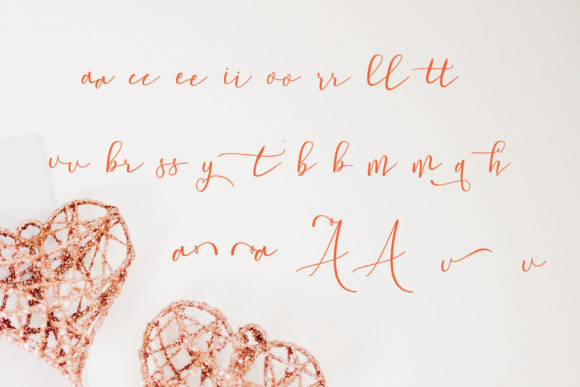 aa cc ee ii oo rr ll tt
vv br ss y t b b m m q h
a a A A v v